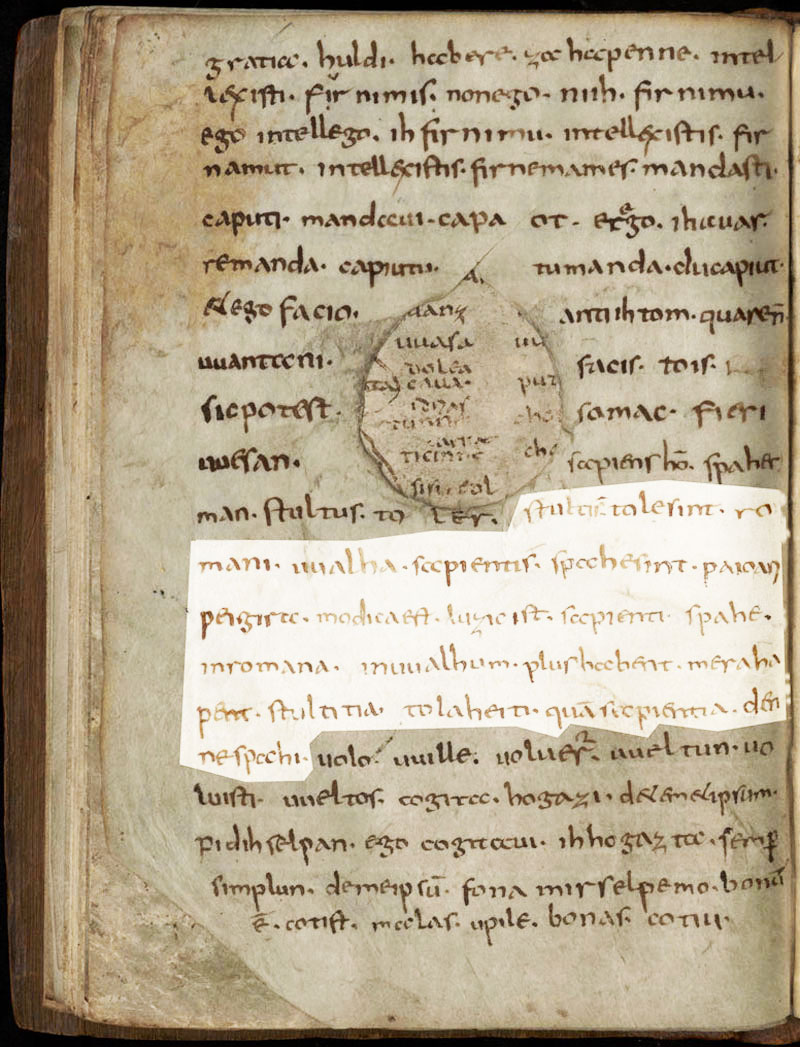 gratia. huldi. habere. za hapenne. intel
lexisti. firnimis. nonego. niih. firnimu.
ego intellego. ih firnimu. intellexistis. fir
namut. intellexistis. firnemames. mandasti.
caputi. mandaui. capa ot. ergo. ihauar.
remanda. caputi. tumanda. ducaput.
etego facio. antiihtom. quareñ
uuantani. facis. tois.
sicpotest. somac. fieri
uuesan. sapiens hō. spaher
man. stultus. toler. stulti st̄ tolesint. ro
mani. uualha. sapienti. spahesint. paioari
peigira. modicaest. luzic ist. sapienti. spahe.
inromana. inuualhum. plus habent. mera ha
pent. stultitia. tolaheiti. quā sapientia. den
nespahi. uolo. uuille. uoluer. uueltun. uo
luisti. uueltos. cogita. hogazi. detemetipsum.
pidihselpan. ego cogitaui. ihhogazta. semp
simplun. demeipsū. fona mirselpemo. bonū
ē. cotist. malas. upile. bonas. cotiu.